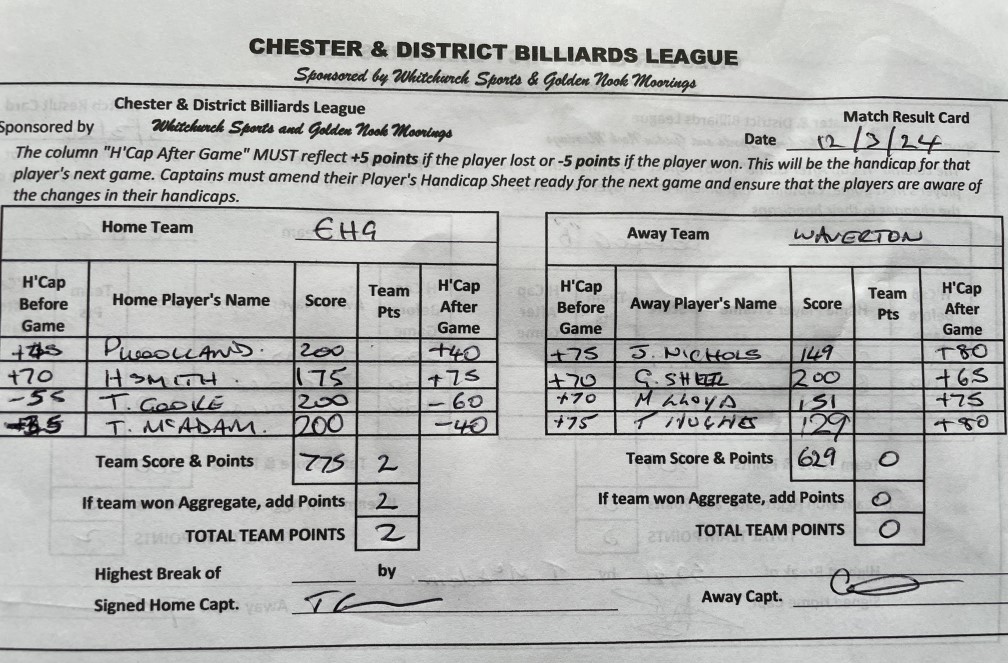 CHESTER & DISTRICT BILLIARDS LEAGUE
Sponsored by Whitchurch Sports & Golden Nook Moorings
Chester & District Billiards League
Match Result Card
Sponsored by Whitchurch Sports and Golden Nook Moorings
Date 12/3/24
The column "H'Cap After Game" MUST reflect +5 points if the player lost or -5 points if the player won. This will be the handicap for that
player's next game. Captains must amend their Player's Handicap Sheet ready for the next game and ensure that the players are aware of
the changes in their handicaps.
Home Team EHG
H'Cap Before Game Home Player's Name Score Team Pts H'Cap After Game
+45 P WOOLLAND. 200 +40
+70 H SMITH. 175 +75
-55 T. COOKE 200 -60
-35 T. McADAM. 200 -40
Team Score & Points 775 2
If team won Aggregate, add Points 2
TOTAL TEAM POINTS 2
Highest Break of by
Signed Home Capt.
Away Team WAVERTON
H'Cap Before Game Away Player's Name Score Team Pts H'Cap After Game
+75 J. NICHOLS 149 +80
+70 G. 200 +65
+70 M LLOYD 151 +75
+75 T HUGHES 129 +80
Team Score & Points 629 0
If team won Aggregate, add Points 0
TOTAL TEAM POINTS 0
Away Capt.